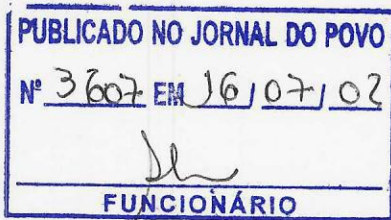 PUBLICADO NO JORNAL DO POVO
Nº 3607 EM 16/07/02
FUNCIONÁRIO